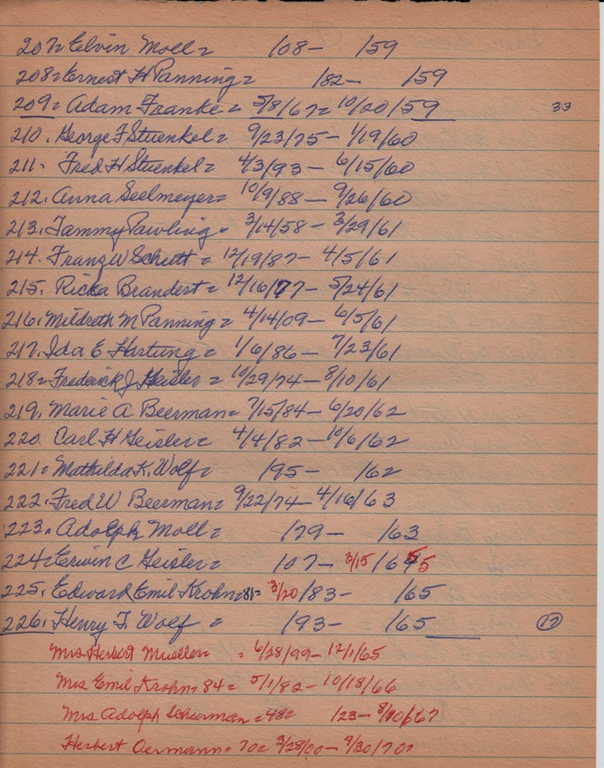 207= Elvin Moll= /08- /59
208= Ernest H Panning= /82- /59
209= Adam Franke= 5/8/67= 10/20/59 33
210. George F Stuenkel= 9/23/75- 1/19/60
211. Fred H Stuenkel= 4/3/93- 6/15/60
212. Anna Seelmeyer= 10/9/88- 9/26/60
213. Tammy Pawling= 3/14/58- 3/29/61
214. Franz W Schutt= 12/19/87- 4/5/61
215. Ricka Brandert= 12/16/77- 5/24/61
216. Mildreth M Panning= 4/14/09- 6/5/61
217. Ida E Hartung= 1/6/86- 7/23/61
218= Frederick J Heisler= 10/29/74- 8/10/61
219. Marie A Beerman= 7/15/84- 6/20/62
220. Carl H Geisler= 4/4/82- 10/6/62
221. Mathilda K. Wolf= /95- /62
222. Fred W Beerman= 9/22/74- 4/16/63
223. Adolph Moll= /79- /63
224= Erwin C Geisler= /07- 3/15/65 5
225. Edward Emil Krohn=81= 3/20/83- /65
226. Henry F. Wolf= /93- /65 17
Mrs Herbert Mueller= 6/28/99- 12/1/65
Mrs Emil Krohn= 84= 5/1/82- 10/18/66
Mrs Adolph Scherman=43= /23- 8/10/67
Herbert Oermann= 70= 3/28/00- 9/30/70=